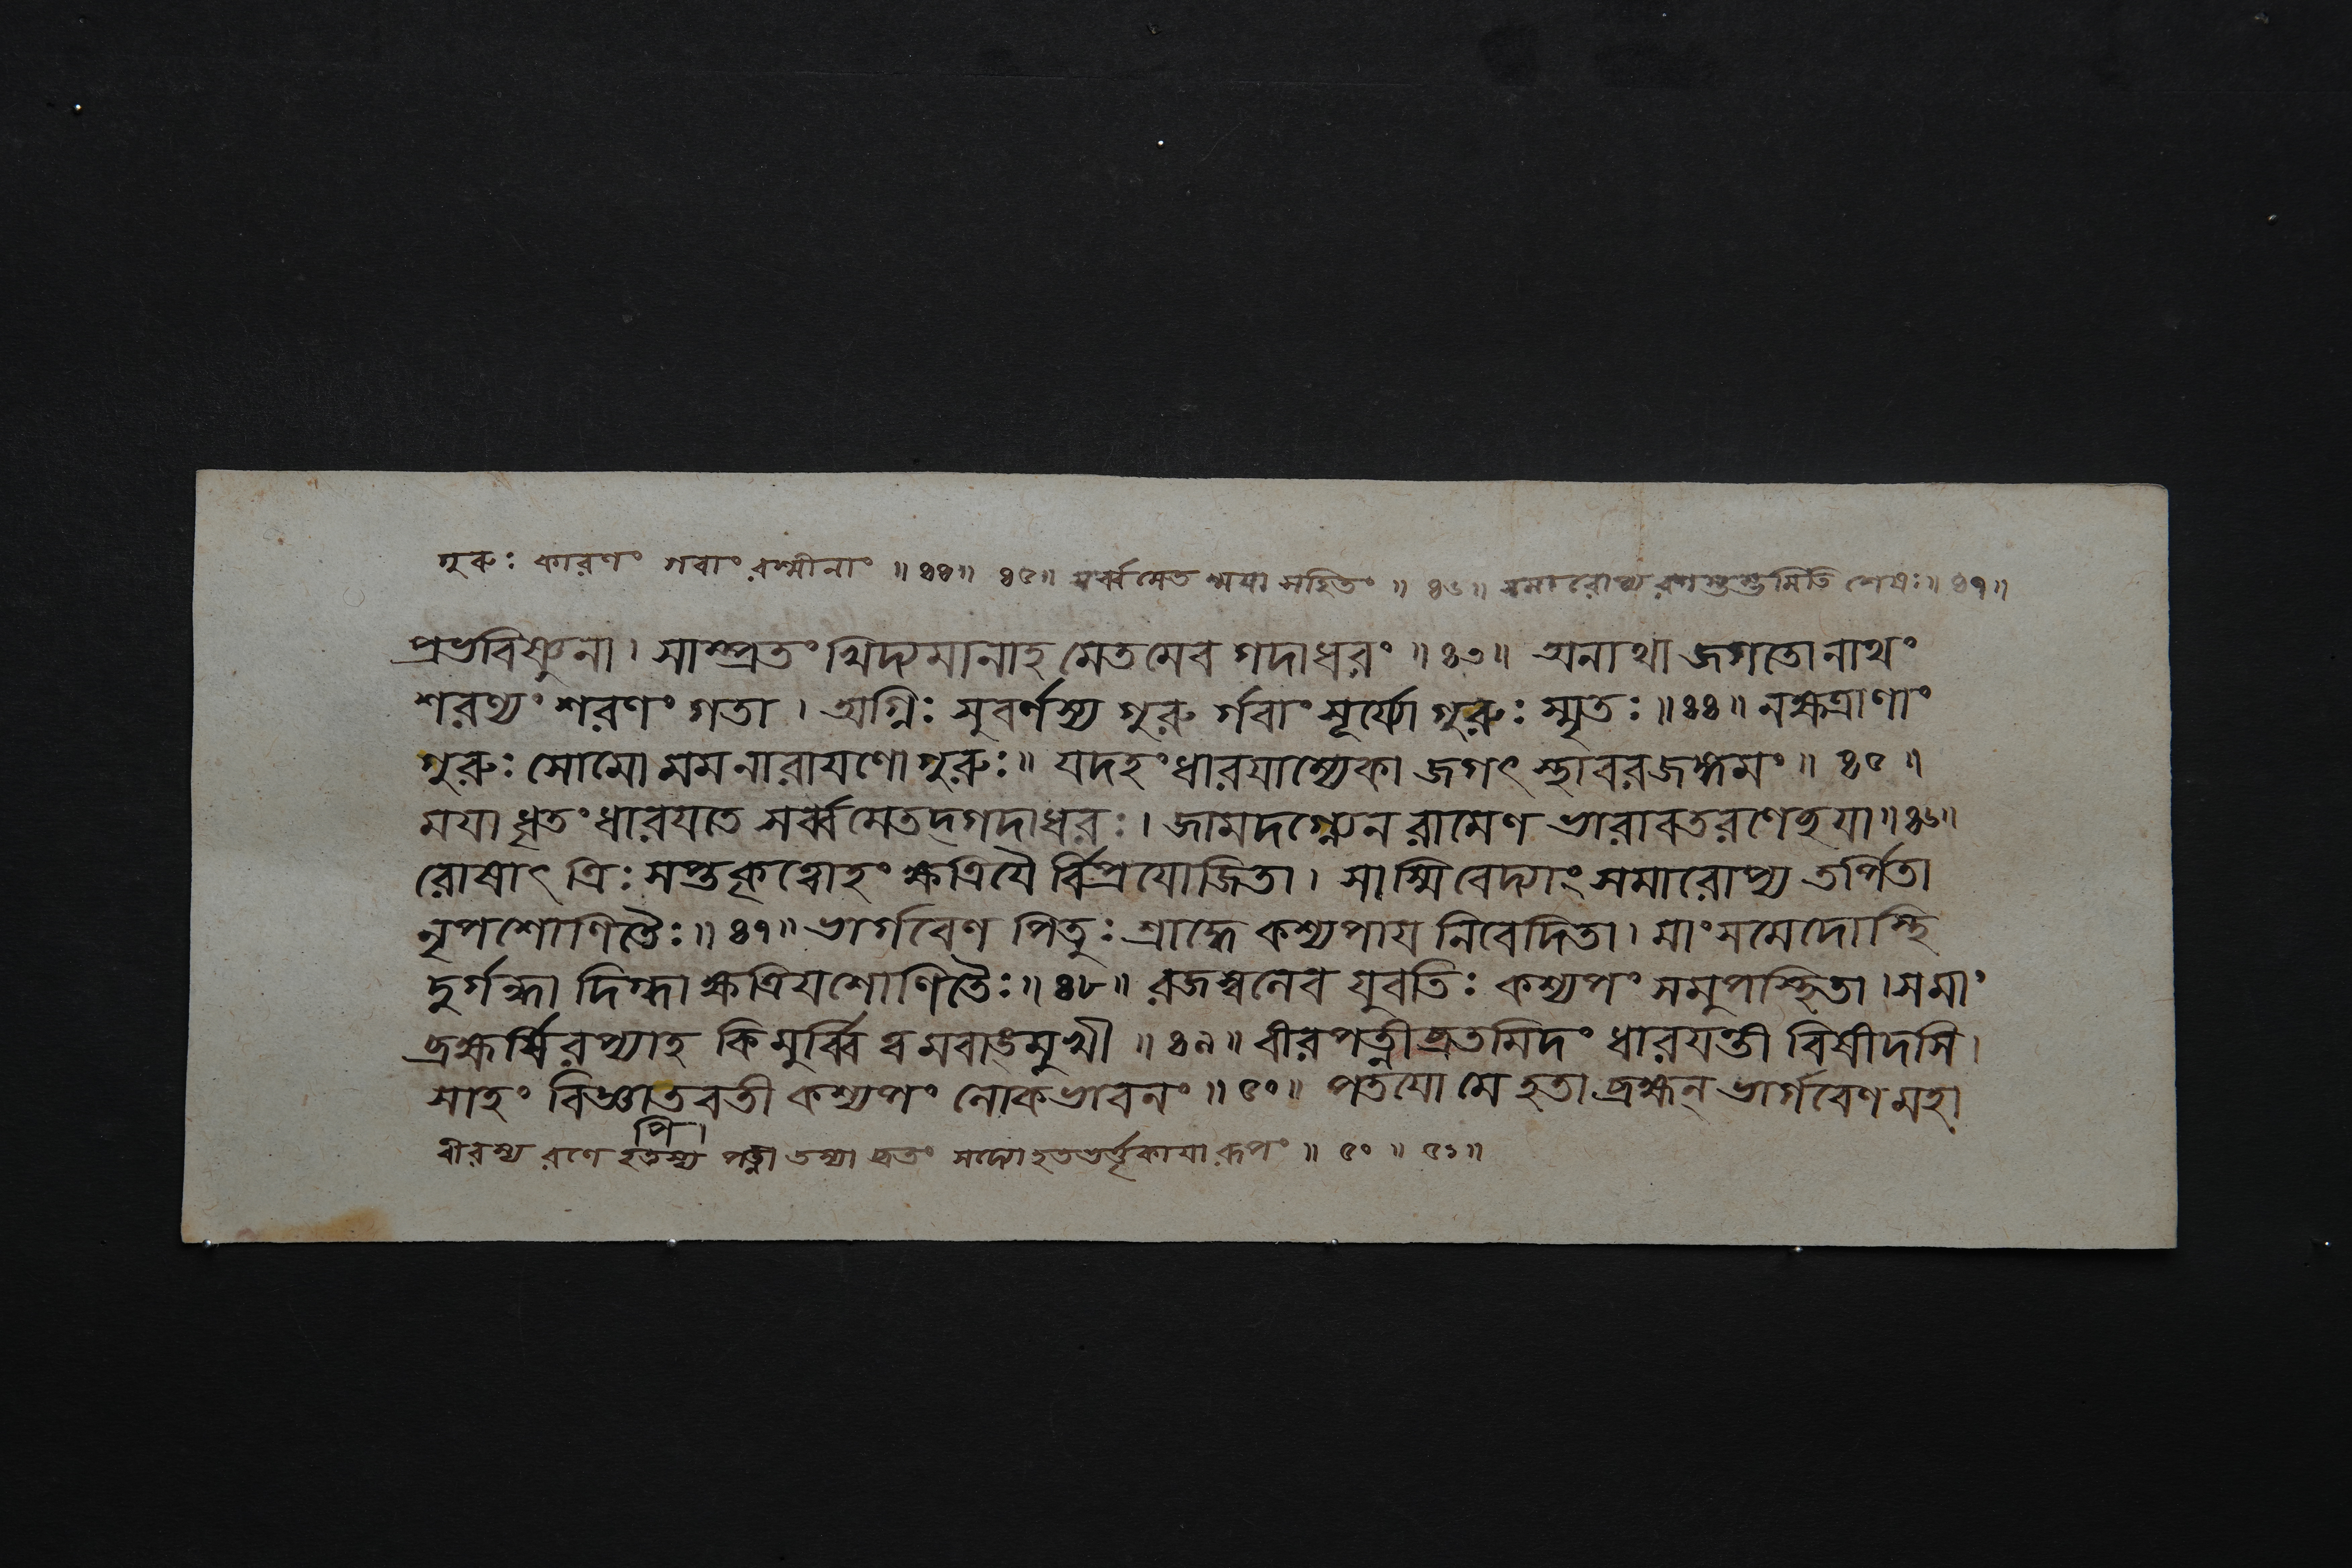 গুরুঃ কারণং গবাং রশ্মীনাং ॥ ৪৪॥ ৪৫॥ সর্ব্বমেত ন্ময়া সহিতং ॥ ৪৬॥ সমারোপ্য রণস্তুস্তুমিতি শেষঃ॥ ৪৭॥
প্রভবিষ্ণুনা। সাম্প্রতং খিদ্যমানাহ মেতমেব গদাধরং ॥৪৩॥ অনাথা জগতো নাথং
শরণ্যং শরণং গতা । অগ্নিঃ সুবর্ণস্য গুরু র্গবাং সূর্য্যো গুরুঃ স্মৃতঃ॥৪৪॥ নক্ষত্রাণাং
গুরুঃ সোমো মম নারায়ণো গুরুঃ॥ যদহং ধারয়াম্যেকা জগৎ স্থাবরজঙ্গমং॥ ৪৫ ॥
ময়া ধৃতং ধারয়তে সর্ব্বমেতদ্গদাধরঃ। জামদগ্ন্যেন রামেণ ভারাবতরণেহয়া॥৪৬॥
রোষাৎ ত্রিঃ সপ্তকৃত্বোহং ক্ষত্রিয়ৈ র্বিপ্রযোজিতা। সাস্মি বেদ্যাং সমারোপ্য তর্পিতা
নৃপশোণিতৈঃ॥ ৪৭॥ ভার্গবেণ পিতুঃ শ্রাদ্ধে কশ্যপায় নিবেদিতা। মাংসমেদোস্থি
দুর্গন্ধা দিগ্ধা ক্ষত্রিয়শোণিতৈঃ॥ ৪৮॥ রজস্বলেব যুবতিঃ কশ্যপং সমুপস্থিতা।স মাং
ব্রহ্মর্ষি রপ্যাহ কিমুর্ব্বি ত্বমবাঙমুখী ॥ ৪৯॥ বীরপত্নীব্রতমিদং ধারয়ন্তী বিষীদসি।
সাহং বিজ্ঞাতবতী কশ্যপং লোকভাবনং॥ ৫০॥ পতয়ো মে হতা ব্রহ্মন্ ভার্গবেণ মহা
পি।
বীরস্য রণে হতস্য পত্ন্যা তস্যা ব্রতং সদ্যো হতভর্ত্তৃকায়া রূপং ॥ ৫০ ॥ ৫১॥